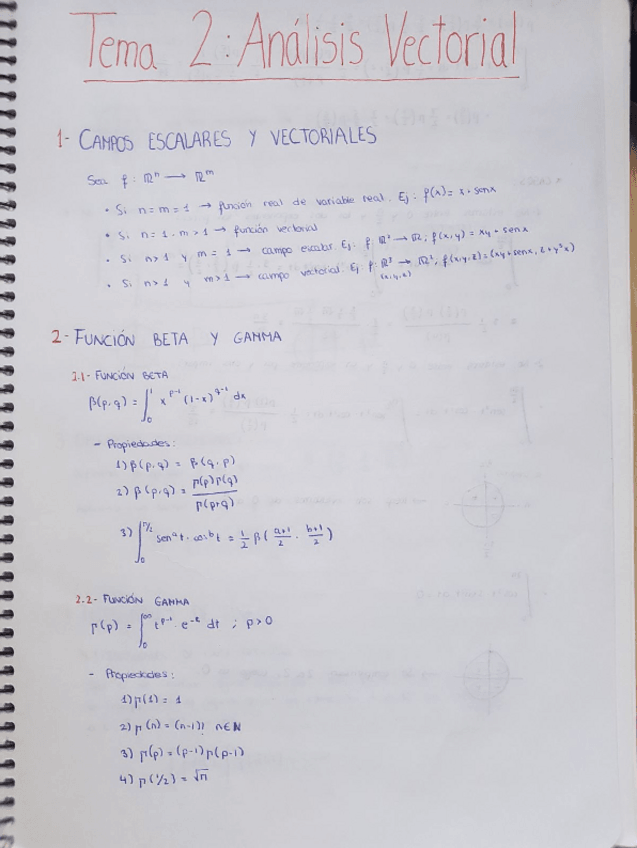 Tema 2: Análisis Vectorial
1- CAMPOS ESCALARES Y VECTORIALES
Sea f: ℝⁿ → ℝᵐ
• Si n=m=1 → función real de variable real. Ej: f(x)= x+senx
• Si n=1, m>1 → función vectorial
• Si n>1 y m=1 → campo escalar. Ej: f: ℝ² → ℝ; f(x,y) = xy + senx
• Si n>1 y m>1 → campo vectorial. Ej f: ℝ³ → ℝ², f(x,y,z)=(xy+senx, z+y²x)
(x,y,z)
2- FUNCIÓN BETA Y GAMMA
2.1- FUNCIÓN BETA
β(p,q) = ∫₀¹ x^(p-1) (1-x)^(q-1) dx
- Propiedades:
1) β(p,q) = β(q,p)
2) β(p,q) = Γ(p)Γ(q) / Γ(p+q)
3) ∫₀^(π/2) senᵃt · cosᵇt = 1/2 β( (a+1)/2 , (b+1)/2 )
2.2- FUNCIÓN GAMMA
Γ(p) = ∫₀^∞ t^(p-1) · e^(-t) dt ; p>0
- Propiedades:
1) Γ(1) = 1
2) Γ(n) = (n-1)! n∈ℕ
3) Γ(p) = (p-1)Γ(p-1)
4) Γ(1/2) = √π